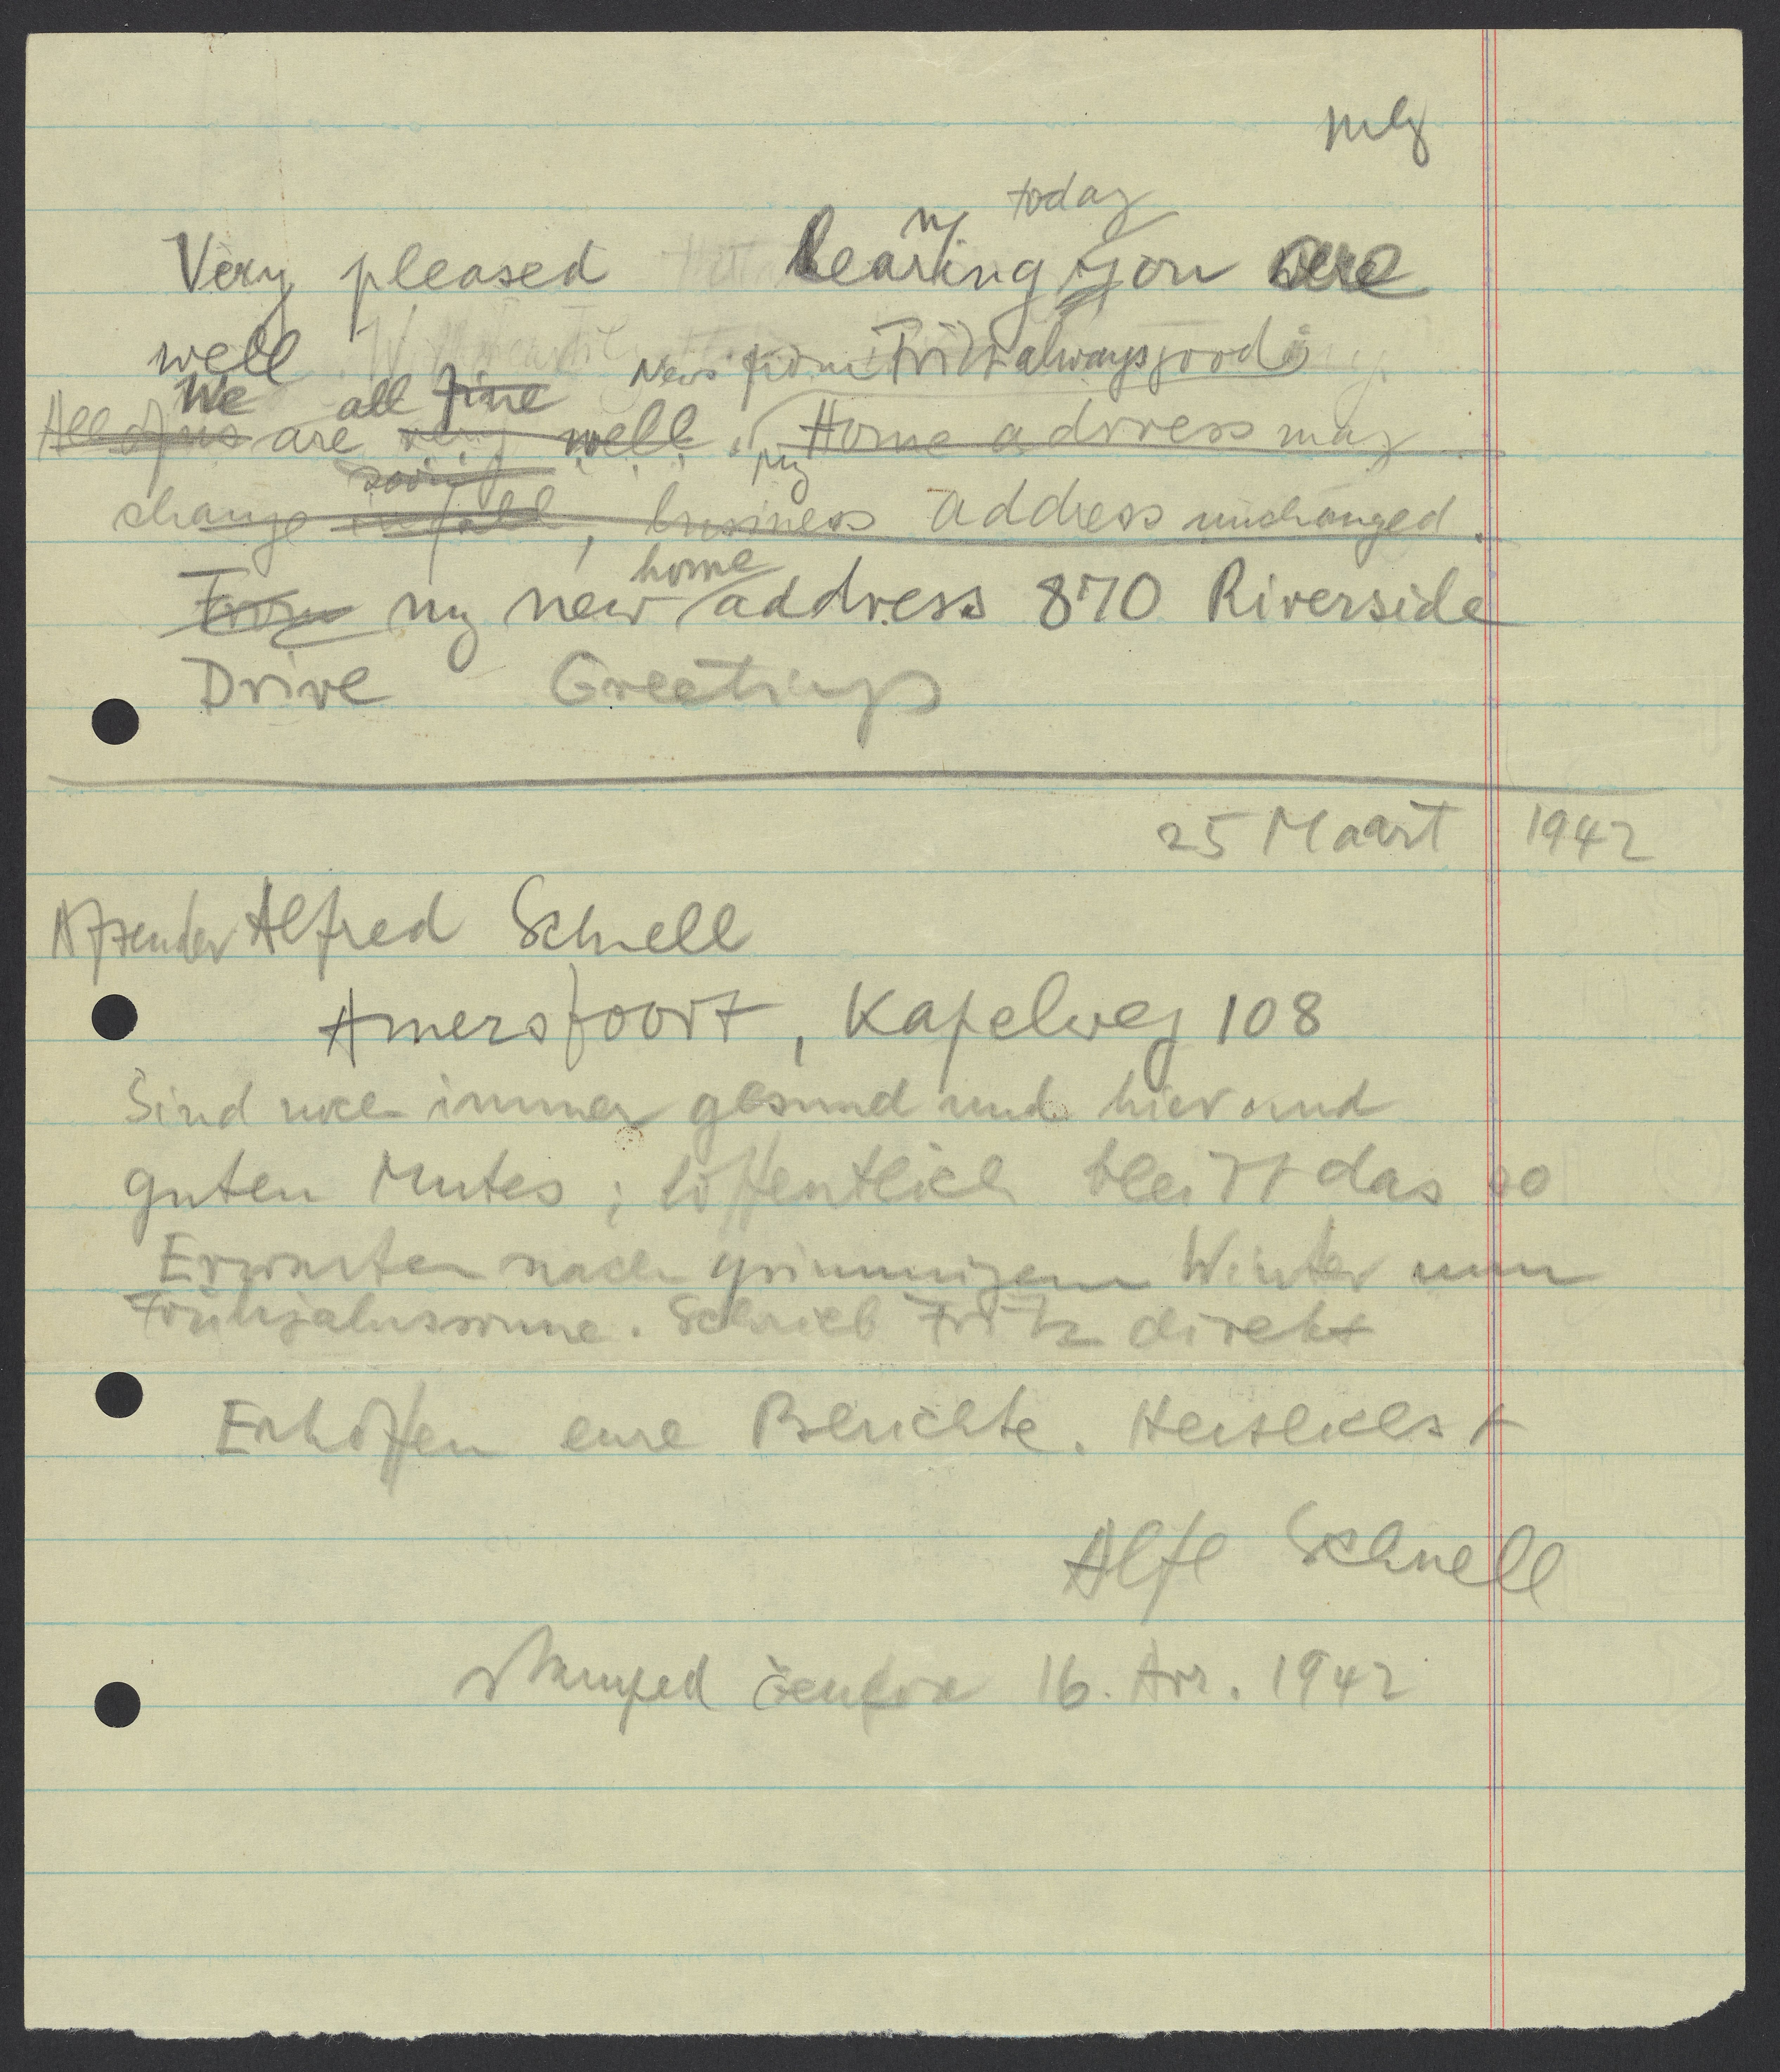 today
Very pleased hearing you are
well News from Fritz always good
We all fine
All of us are very well. my Home address may
soon
change in fall, business address unchanged.
home
From my new address 870 Riverside
Drive Greetings
25 Maart 1942
Afzender Alfred Schnell
Amersfoort, Kapelweg 108
Sind noch immer gesund und hier und
guten Mutes; hoffentlich bleibt das so
Erwarten nach grimmigem Winter nun
Frühjahrssonne. Schrieb Fritz direkt
Erhoffen eure Berichte. Herzlichst
Alfr Schnell
stamped 16. Apr. 1942